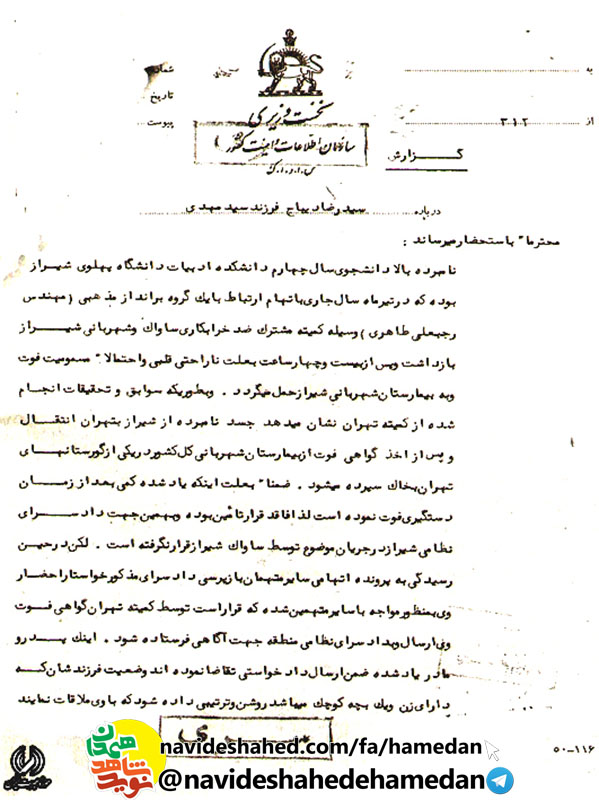 نخست وزیری
سازمان اطلاعات و امنیت کشور
س.ا.و.ا.ک
به
شماره
تاریخ
از ۳۱۲
پیوست
گزارش
درباره سیدرضا دیباج فرزند سید مهدی
محترما" باستحضار میرساند :
نامبرده بالا دانشجوی سال چهارم دانشکده ادبیات دانشگاه پهلوی شیراز
بوده که در تیرماه سال جاری باتهام ارتباط با یک گروه برانداز مذهبی (مهندس
رجبعلی طاهری) وسیله کمیته مشترک ضد خرابکاری ساواک وشهربانی شیراز
بازداشت وپس از بیست وچهار ساعت بعلت ناراحتی قلبی واحتمالا" مسمومیت فوت
وبه بیمارستان شهربانی شیراز حمل میگردد . وبطوریکه سوابق و تحقیقات انجام
شده از کمیته تهران نشان میدهد جسد نامبرده از شیراز بتهران انتقال
و پس از اخذ گواهی فوت از بیمارستان شهربانی کل کشور در یکی از گورستانهای
تهران بخاک سپرده میشود . ضمنا" بعلت اینکه یاد شده کمی بعد از زمان
دستگیری فوت نموده است لذا فاقد قرار تأمین بوده وبهمین جهت دادسرای
نظامی شیراز در جریان موضوع توسط ساواک شیراز قرار نگرفته است . لکن در حین
رسیدگی به پرونده اتهامی سایر متهمان بازپرسی دادسرای مذکور خواستار احضار
وی بمنظور مواجه با سایر متهمین شده که قرار است توسط کمیته تهران گواهی فوت
وی ارسال وبدادسرای نظامی منطقه جهت آگاهی فرستاده شود . اینک پدر و
مادر یاد شده ضمن ارسال دادخواستی تقاضا نموده اند وضعیت فرزندشان که
دارای زن ویک بچه کوچک میباشد روشن وترتیبی داده شود که با وی ملاقات نمایند
سری
۵۰-۱۱۶
نوید شاهد همدان
navideshahed.com/fa/hamedan
@navideshahedehamedan